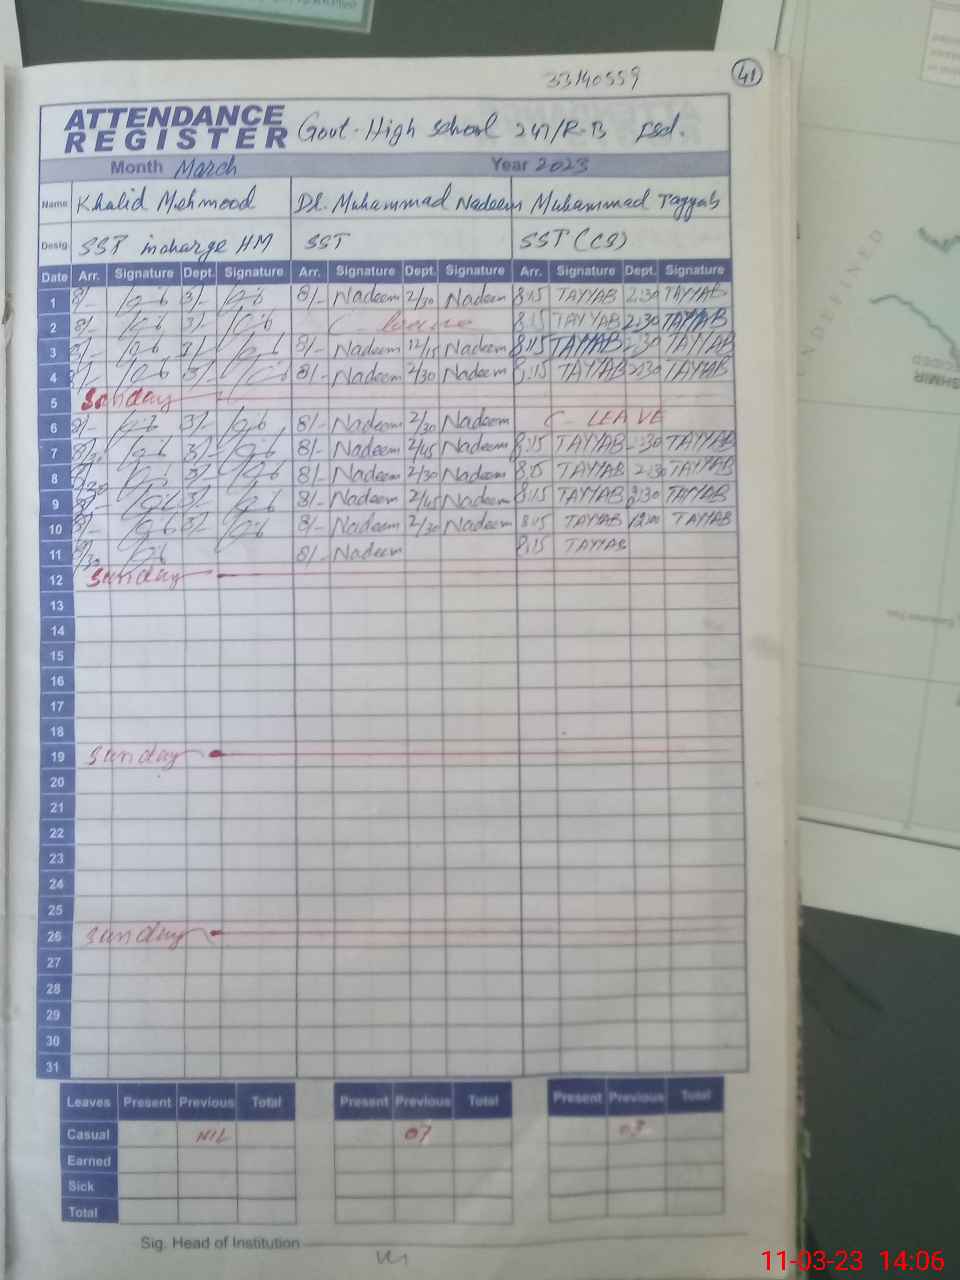 33140559
41
ATTENDANCE REGISTER Govt. High School 247/R-B Fsd.
Month March Year 2023
Name Khalid Mehmood Muhammad Nadeem Muhammad Tayyab
Desig. SST incharge HM SST SST (CS)
Date Arr. Signature Dept. Signature Arr. Signature Dept. Signature Arr. Signature Dept. Signature
1 8/- 3/- 8/- Nadeem 2/30 Nadeem 8:15 TAYYAB 2:30 TAYYAB
2 8/- 3/- C- leave 8:15 TAYYAB 2:30 TAYYAB
3 8/- 3/- 8/- Nadeem 12/15 Nadeem 8:15 TAYYAB TAYYAB
4 3/- 8/- Nadeem 2/30 Nadeem 8:15 TAYYAB 2:30 TAYYAB
5 Sunday
6 8/- 3/- 8/- Nadeem 2/30 Nadeem C- LEAVE
7 3/- 8/- Nadeem 2/45 Nadeem 8:15 TAYYAB 2:30 TAYYAB
8 3/- 8/- Nadeem 2/30 Nadeem 8:15 TAYYAB 2:30 TAYYAB
9 3/- 8/- Nadeem 2/45 Nadeem 8:15 TAYYAB 2:30 TAYYAB
10 8/- 3/- 8/- Nadeem 2/30 Nadeem 8:15 TAYYAB TAYYAB
11 8/- Nadeem 8:15 TAYYAB
12 Sunday
13
14
15
16
17
18
19 Sunday
20
21
22
23
24
25
26 Sunday
27
28
29
30
31
Leaves Present Previous Total Present Previous Total Present Previous Total
Casual NIL 07 03
Earned
Sick
Total
Sig. Head of Institution
UNDEFINED
11-03-23 14:06